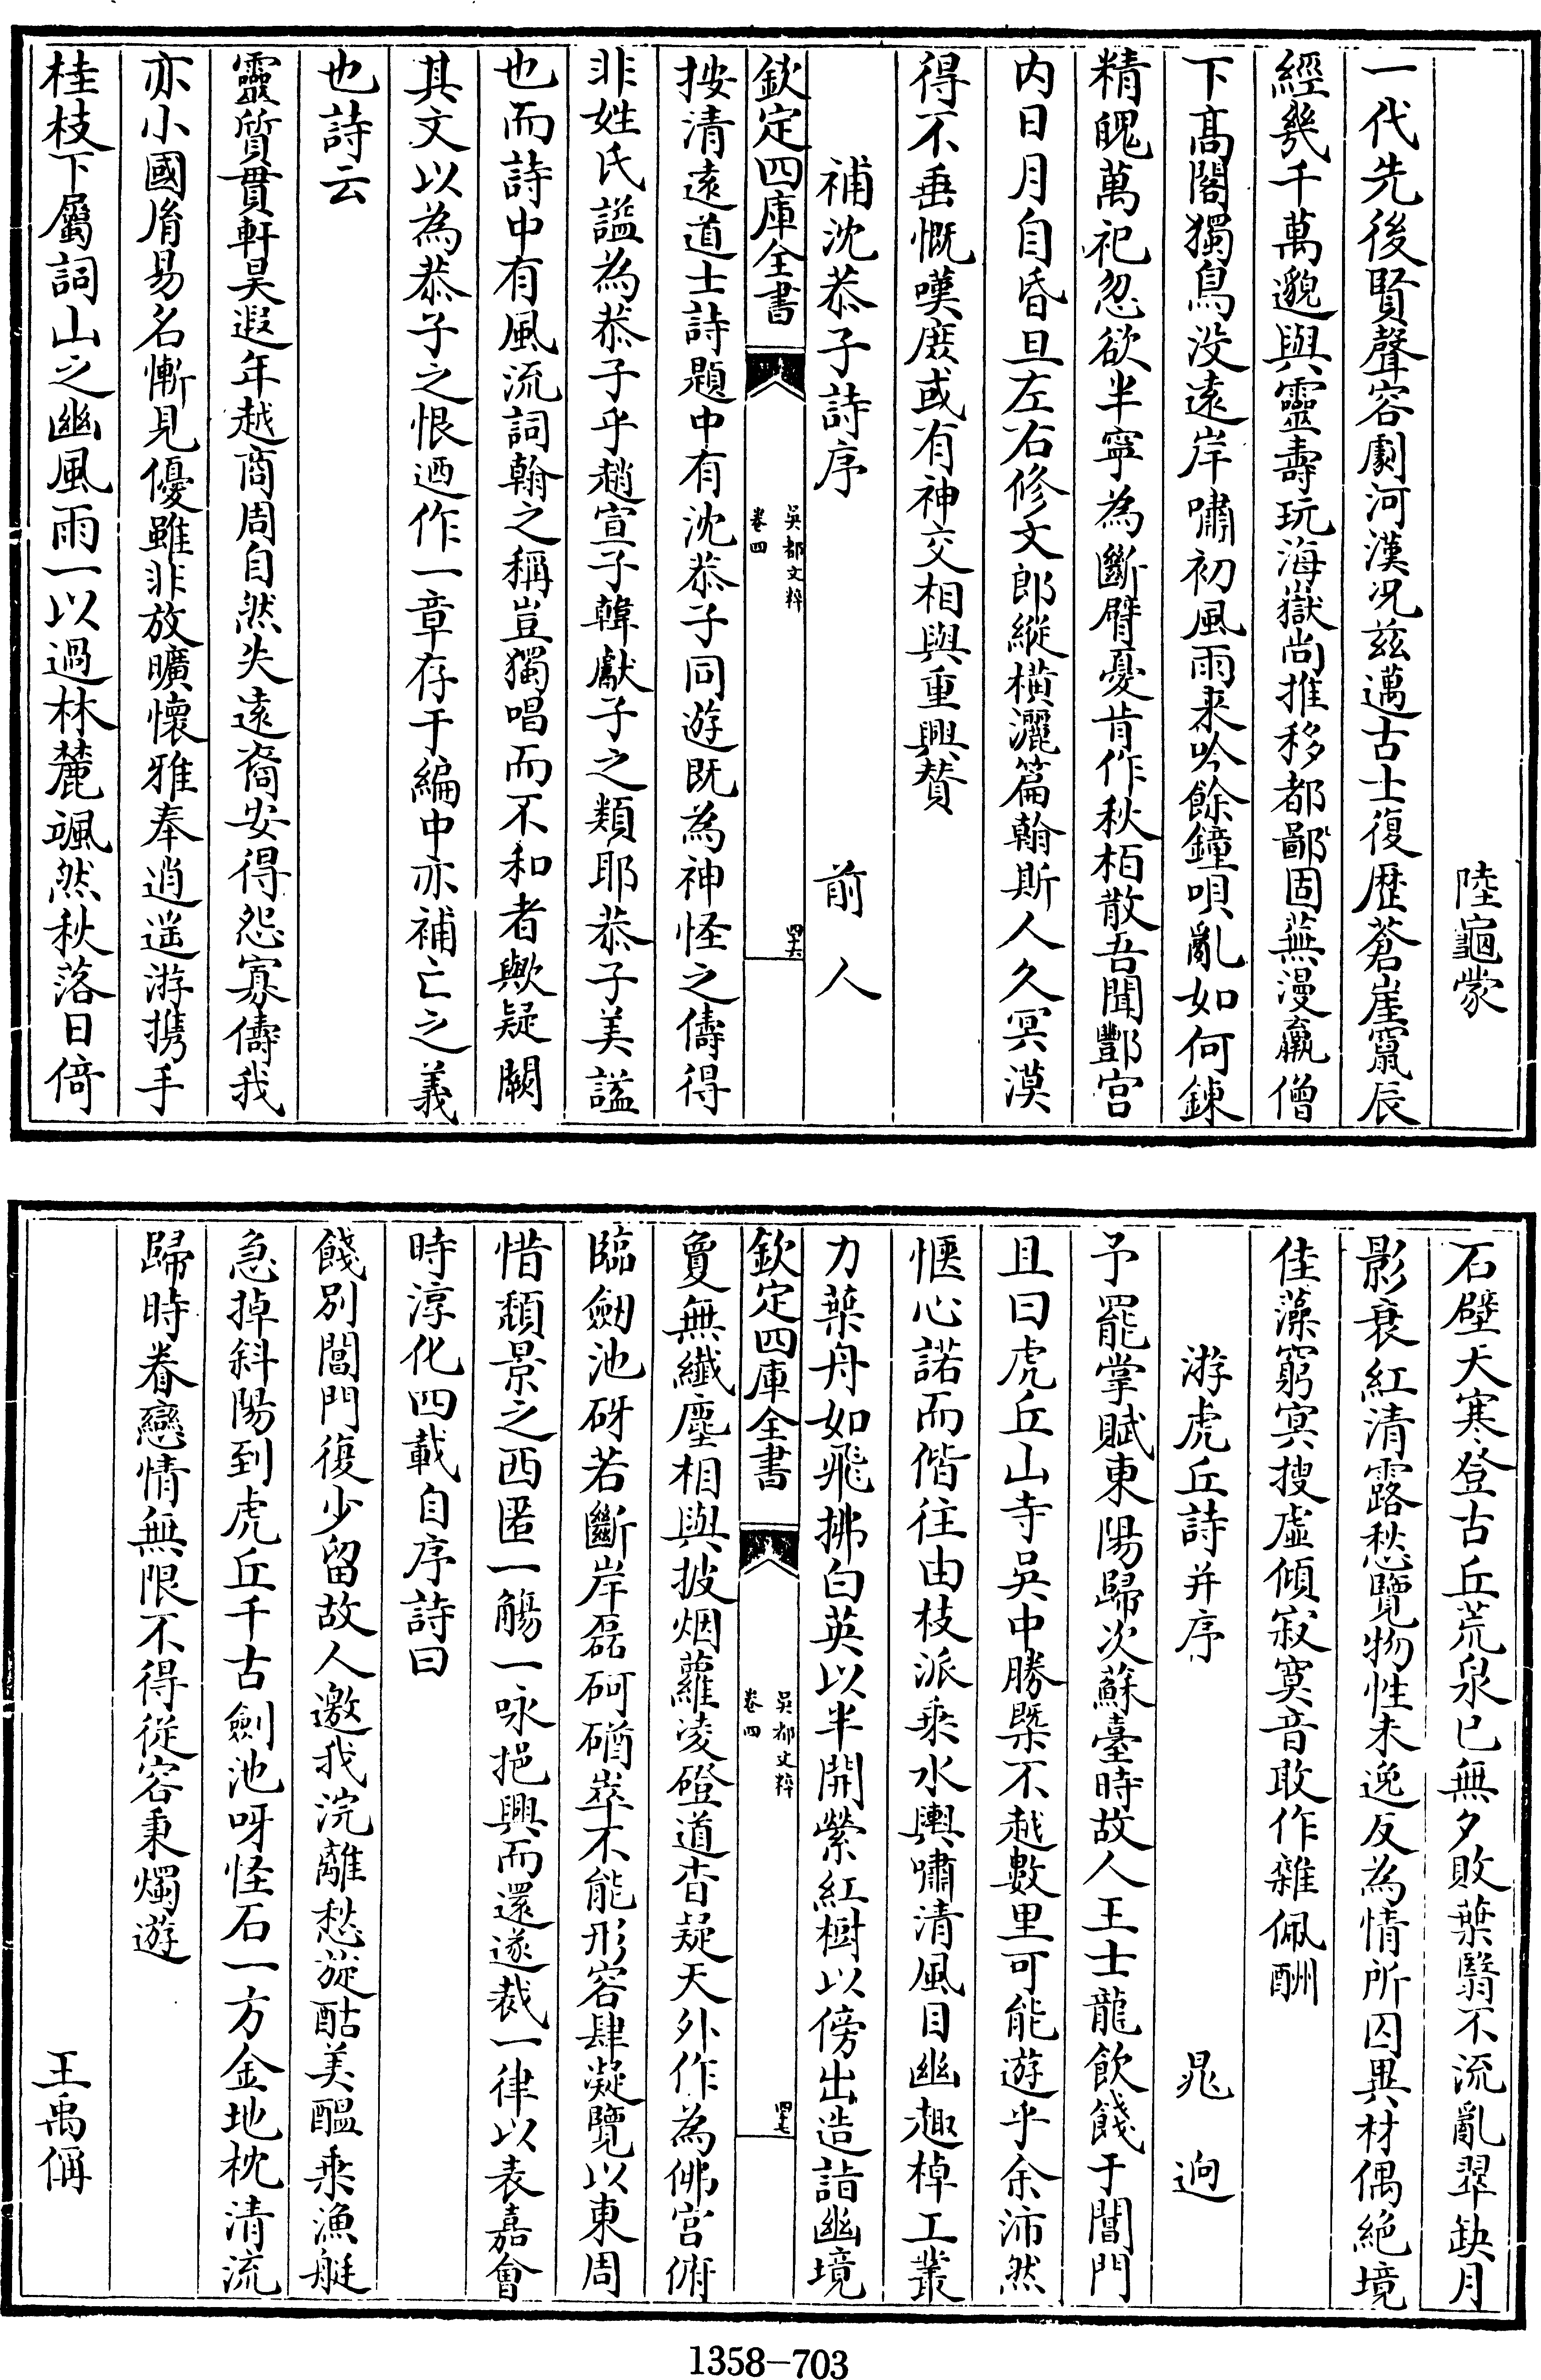 陸龜蒙
一代先後賢聲容劇河漢况兹邁古士復歴蒼崖竄辰
經幾千萬邈與靈壽玩海嶽尚推移都鄙固蕪漫羸僧
下髙閣獨鳥没遠岸嘯初風雨来吟餘鐘唄亂如何鍊
精魄萬祀忽欲半寜為斷臂憂肯作秋栢散吾聞酆宫
内日月自昏旦左右修文郎縱横灑篇翰斯人久冥漠
得不垂慨嘆庶或有神交相與重興賛
補沈恭子詩序　前人
欽定四庫全書
吳都文粹
卷四
四六
按清遠道士詩題中有沈恭子同遊既為神怪之儔得
非姓氏謚為恭子乎趙宣子韓獻子之類耶恭子美謚
也而詩中有風流詞翰之稱豈獨唱而不和者歟疑闕
其文以為恭子之恨迺作一章存于編中亦補亡之義
也詩云
靈質貫軒昊遐年越商周自然失遠裔安得怨寡儔我
亦小國胤易名慚見優雖非放曠懷雅奉逍遥游携手
桂枝下屬詞山之幽風雨一以過林麓颯然秋落日倚
石壁天寒登古丘荒泉已無夕敗葉翳不流亂翠缺月
影衰紅清露愁覽物性未逸反為情所囚異材偶絶境
佳藻窮冥搜虚傾寂寞音敢作雜佩酬
游虎丘詩并序　晁迥
予罷掌賦東陽歸次蘇臺時故人王士龍飲餞于閶門
且曰虎丘山寺吳中勝槩不越數里可能遊乎余沛然
愜心諾而偕往由枝派乘水輿嘯清風目幽趣棹工叢
力葉舟如飛拂白英以半開縈紅樹以傍出造詣幽境
敻無纎塵相與披烟蘿凌磴道杳疑天外作為佛宫俯
欽定四庫全書
吳都文粹
卷四
四七
臨劒池砑若斷岸磊砢磳崒不能形容肆凝覽以東周
惜頽景之西匿一觴一咏挹興而還遂裁一律以表嘉會
時淳化四載自序詩曰
餞别閶門復少留故人邀我浣離愁旋酤美醖乘漁艇
急掉斜陽到虎丘千古劒池呀怪石一方金地枕清流
歸時眷戀情無限不得從容秉燭遊
王禹偁
1358-703